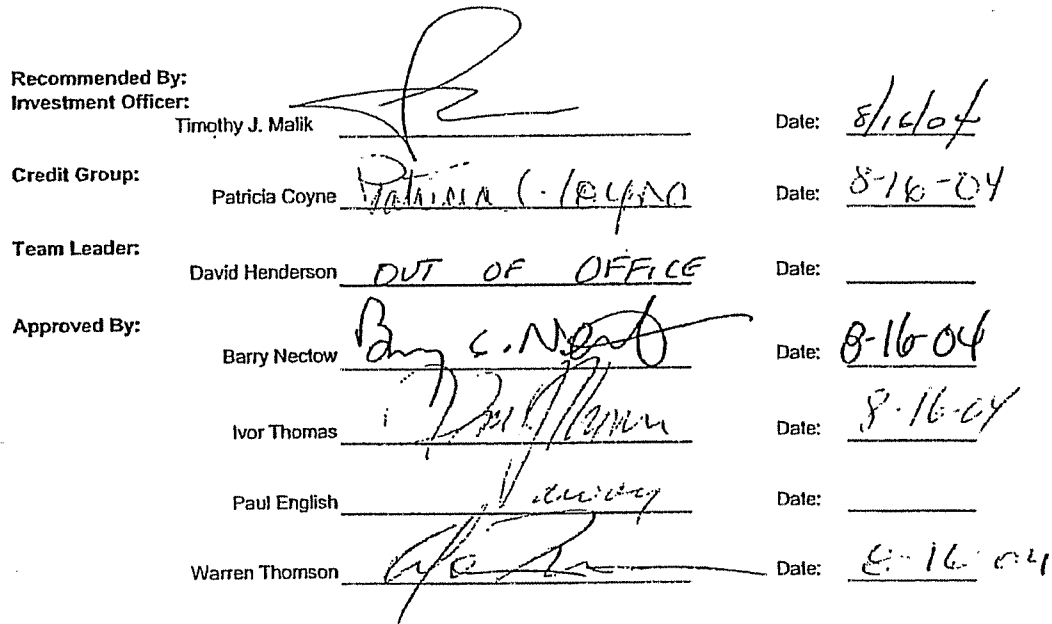 Recommended By:
Investment Officer:
Timothy J. Malik Date: 8/16/04
Credit Group:
Patricia Coyne Patricia C. Coyne Date: 8-16-04
Team Leader:
David Henderson OUT OF OFFICE Date:
Approved By:
Barry Nectow Barry C. Nectow Date: 8-16-04
Ivor Thomas Date: 8-16-04
Paul English Date:
Warren Thomson Date: 8-16-04